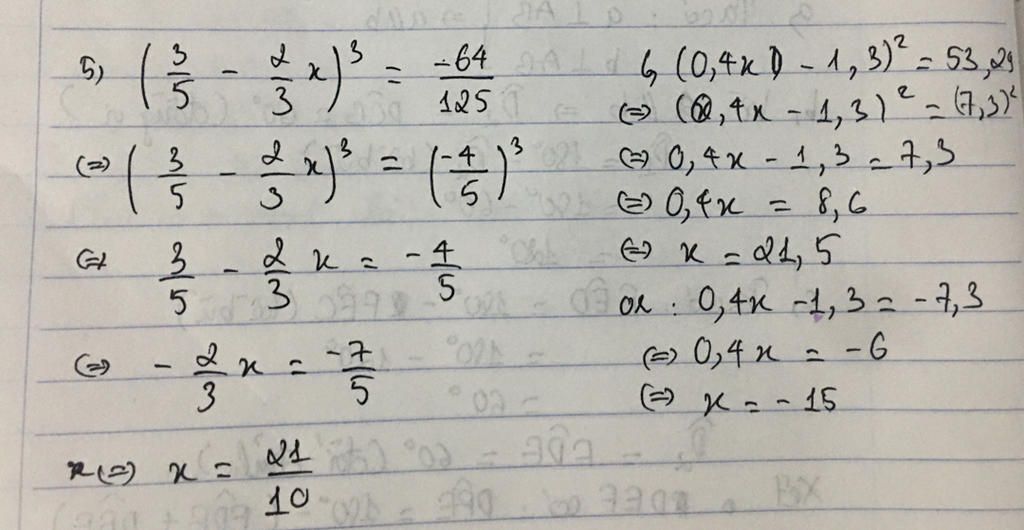 5, (3/5 - 2/3 x)^3 = -64/125
(=) (3/5 - 2/3 x)^3 = (-4/5)^3
(=) 3/5 - 2/3 x = -4/5
(=) - 2/3 x = -7/5
(=) x = 21/10
6, (0,4x - 1,3)^2 = 53,29
(=) (0,4x - 1,3)^2 = (7,3)^2
(=) 0,4x - 1,3 = 7,3
(=) 0,4x = 8,6
(=) x = 21,5
or : 0,4x - 1,3 = -7,3
(=) 0,4x = -6
(=) x = -15